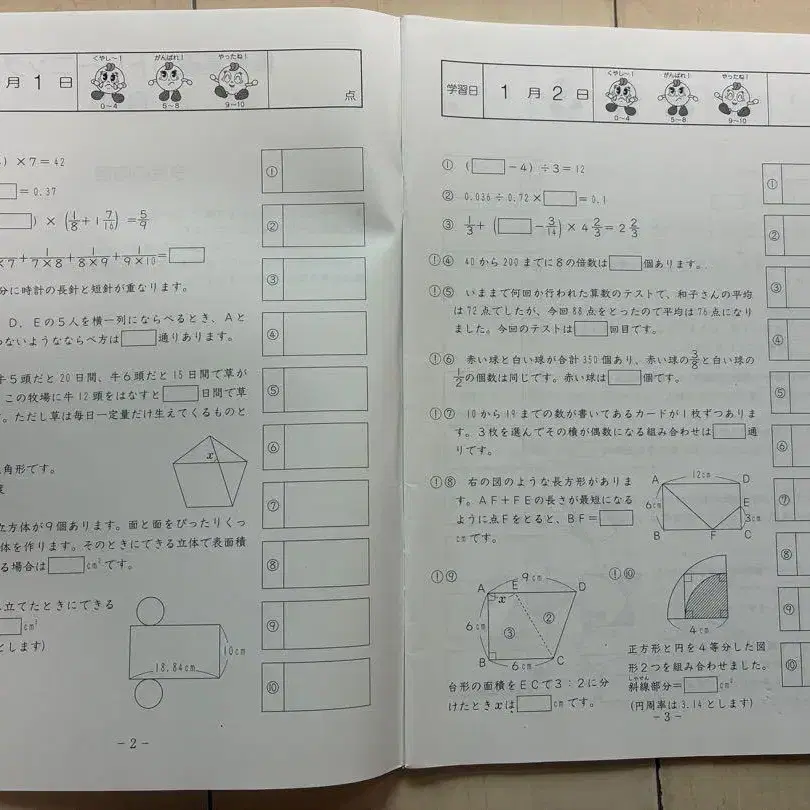 月 1 日
くやし～！
がんばれ！
やったね！
0～4
5～8
9～10
点
) ×7＝42
＝0.37
) × (1/8＋1 7/16) ＝5/9
×7＋1/7×8＋1/8×9＋1/9×10＝
分に時計の長針と短針が重なります。
D、Eの5人を横一列にならべるとき、Aと
ないようなならべ方は 通りあります。
牛5頭だと20日間、牛6頭だと15日間で草が
この牧場に牛12頭をはなすと 日間で草
。ただし草は毎日一定量だけ生えてくるものと
角形です。
x
度
立方体が9個あります。面と面をぴったりくっ
体を作ります。そのときにできる立体で表面積
る場合は cm²です。
立てたときにできる
cm³
とします)
18.84cm
10cm
①
②
③
④
⑤
⑥
⑦
⑧
⑨
⑩
－2－
学習日
1 月 2 日
くやし～！
がんばれ！
やったね！
0～4
5～8
9～10
① ( －4) ÷3＝12
② 0.036÷0.72× ＝0.1
③ 1/3＋ ( －3/14) ×4 2/3＝2 2/3
①④ 40から200までに8の倍数は 個あります。
①⑤ いままで何回か行われた算数のテストで、和子さんの平均
は72点でしたが、今回88点をとったので平均は76点になり
ました。今回のテストは 回目です。
①⑥ 赤い球と白い球が合計350個あり、赤い球の3/8と白い球の
1/2の個数は同じです。赤い球は 個です。
①⑦ 10から19までの数が書いてあるカードが1枚ずつありま
す。3枚を選んでその積が偶数になる組み合わせは 通
りです。
①⑧ 右の図のような長方形がありま
す。AF＋FEの長さが最短になる
ように点Fをとると、BF＝
cmです。
12cm
A
D
6cm
E
3cm
B
F
C
①⑨
A
E
9cm
D
x
②
6cm
③
B
6cm
C
台形の面積をECで3：2に分
けたときxは cmです。
①⑩
4cm
正方形と円を4等分した図
形2つを組み合わせました。
しゃせん
斜線部分＝ cm²
(円周率は3.14とします)
①
②
③
④
⑤
⑥
⑦
⑧
⑨
⑩
－3－